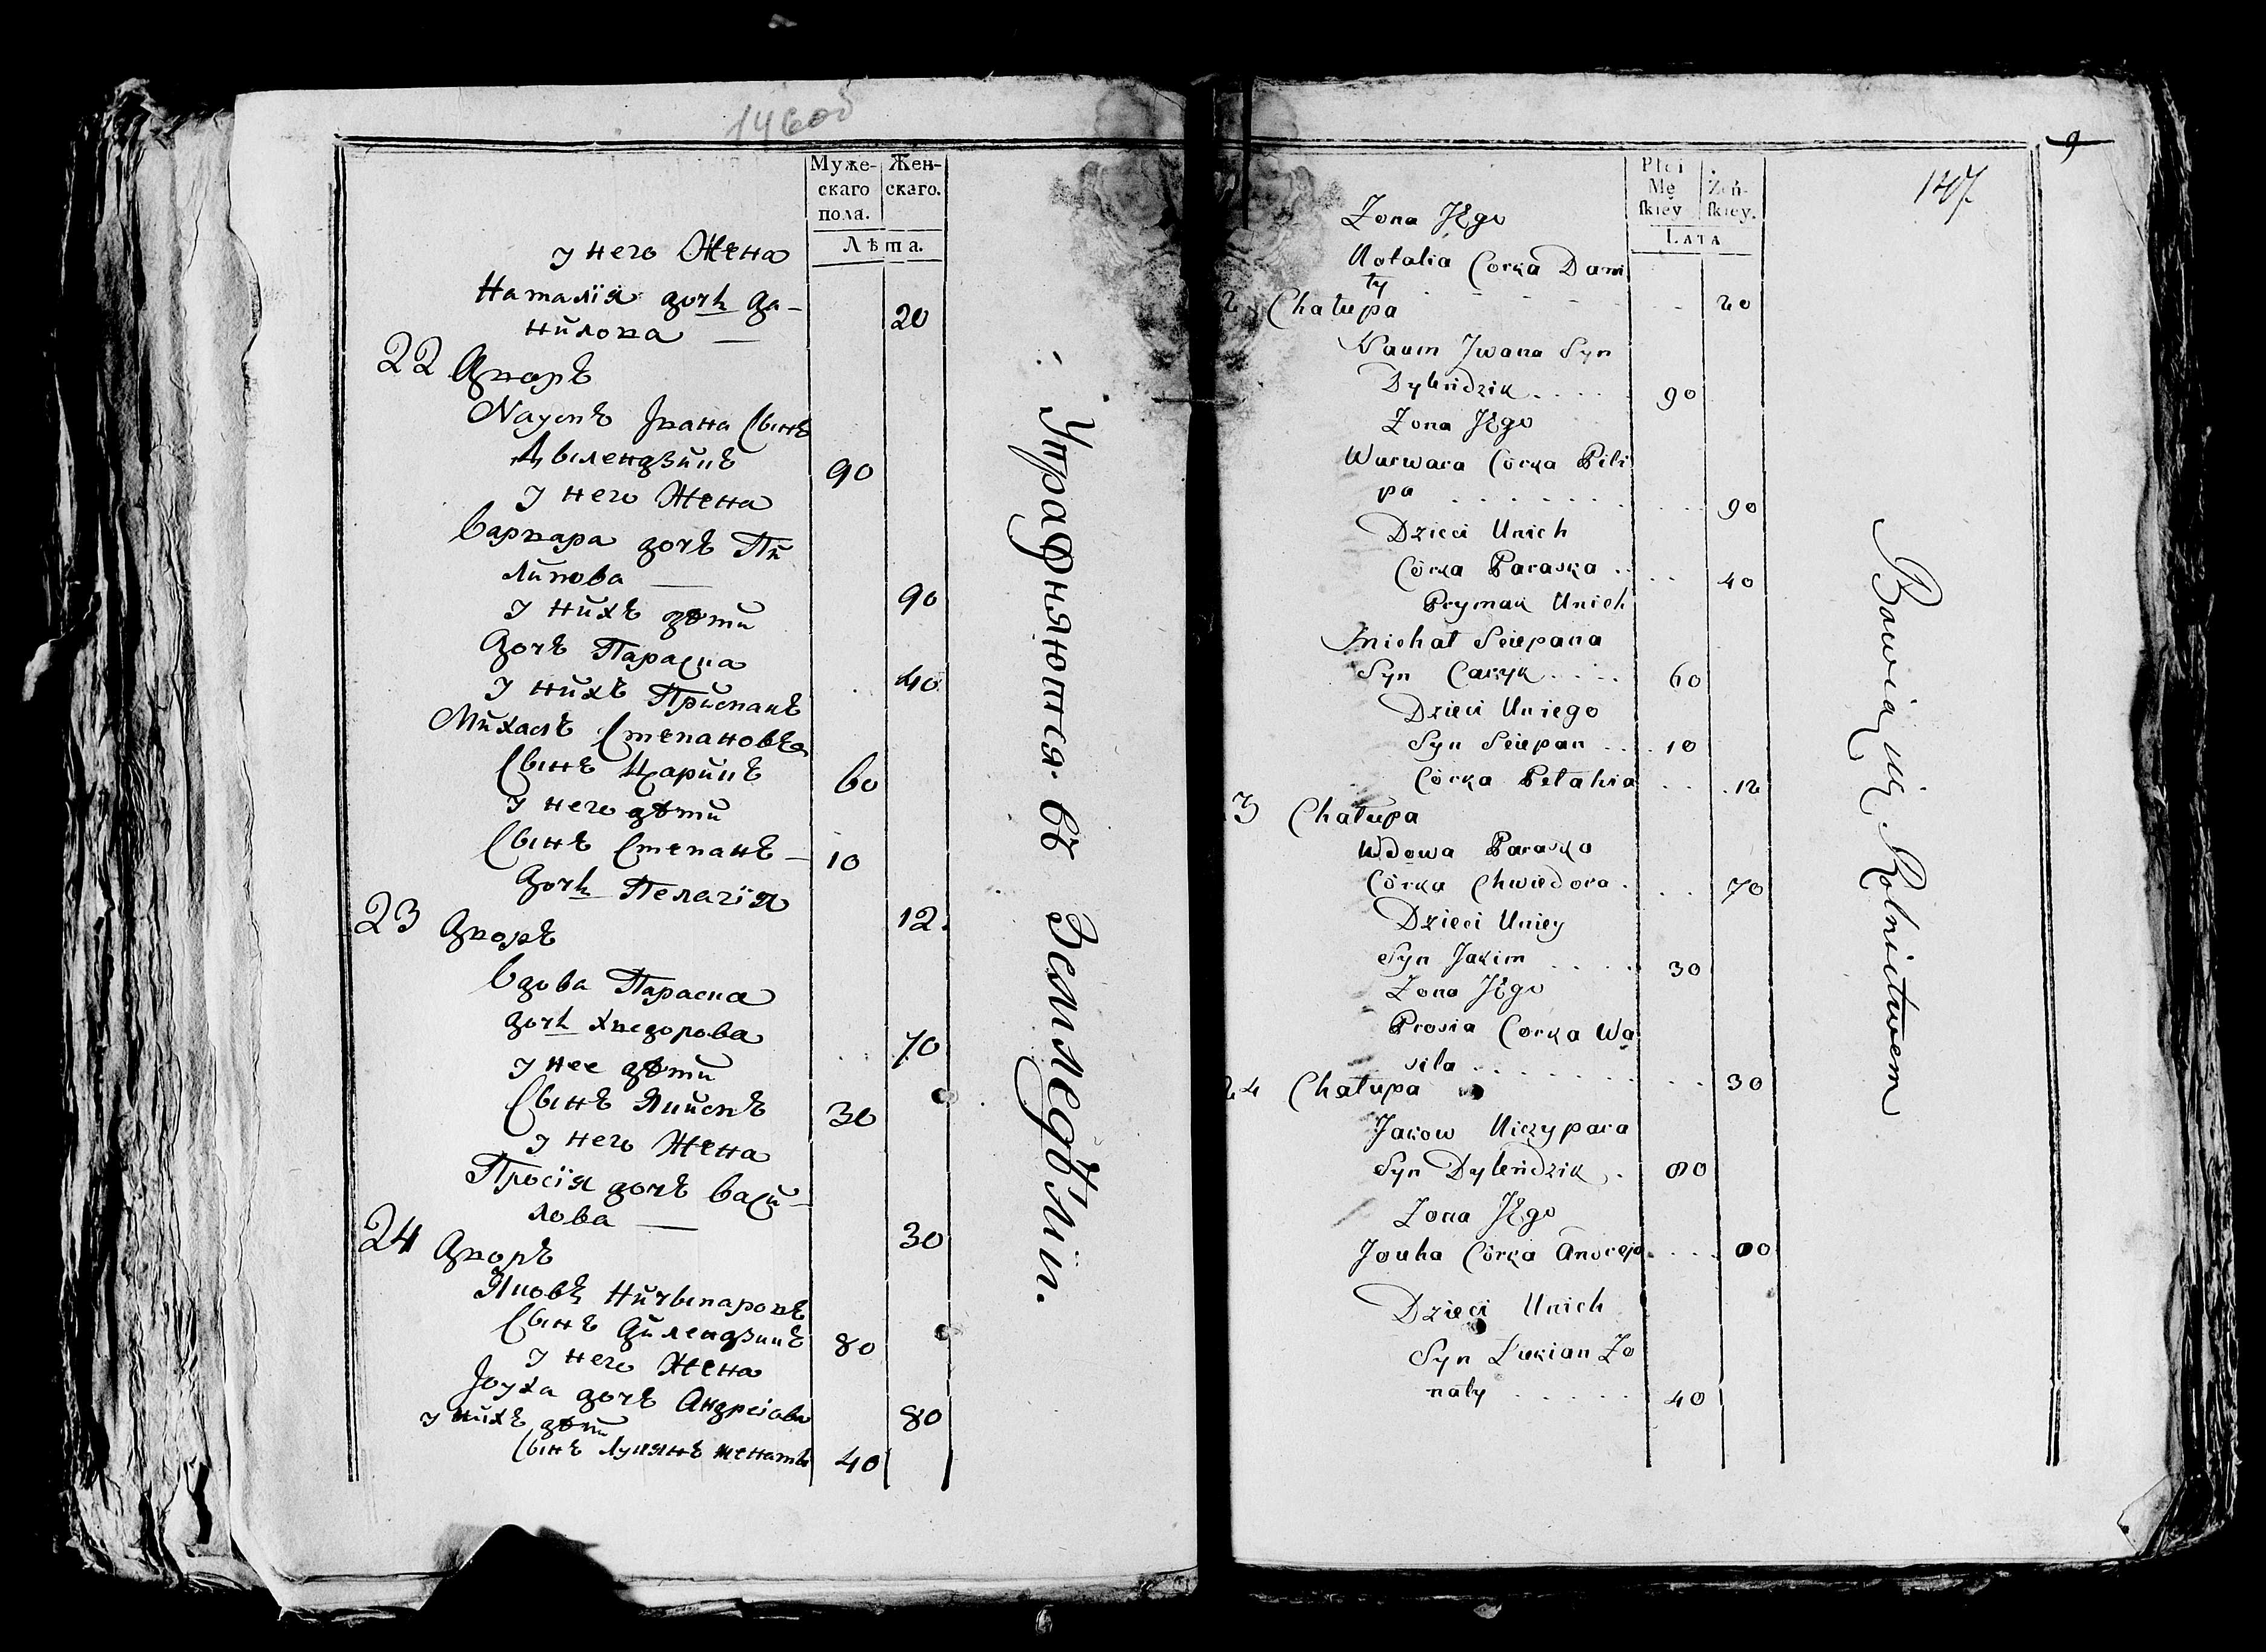 146об
Муже- Жен-
скаго скаго.
пола.
Лѣта.
у него Жена
Наталія дочь Да-
нилова — 20
22 Дворъ
Наумъ Ивана Сынъ
Дылендзикъ 90
у него Жена
Варвара дочъ Пи
липова — 90
у нихъ дѣти
Дочъ Параска 40
у нихъ Прымакъ
Михалъ Степановъ
Сынъ Царикъ 60
у него дѣти
Сынъ Степанъ — 10
Дочь Пелагія 12.
23 Дворъ
Вдова Параска
дочь Хведорова 70
у нее дѣти
Сынъ Якимъ 30
у него Жена
Просія дочъ Васи-
лова — 30
24 Дворъ
Яковъ Ничыпаровъ
Сынъ Дилендзикъ 80
у него Жена
Јоуха дочъ Андреіова 80
у нихъ дѣти
Сынъ Лукянъ женатъ 40
Упражняются въ Земледѣліи.
9
147.
Płci
Mę Żeń-
ſkiey ſkiey.
LATA
Zona Jego
Natalia Corka Dani
ły - - - - - - 20
Chałupa
Naum Jwana Syn
Dyleńdzik . . . . 90
Zona Jego
Warwara Córka Pili
pa . . . . . . . 90
Dzieci Unich
Córka Paraska . . . . 40
Prymak Unich
Michał Sciepana
Syn Caryk . . . . 60
Dzieci Uniego
Syn Sciepan . . . 10
Córka Pełahia . . . 12
3 Chałupa
Wdowa Paraska
Córka Chwiedora . . . 70
Dzieci Uniey
Syn Jakim . . . . 30
Zona Jego
Prosia Corka Wa
sila . . . . . . . . 30
24 Chałupa
Jakow Niczypara
Syn Dyleńdzik . 80
Zona Jego
Jouha Córka Andreja . . . 80
Dzieci Unich
Syn Łukian Zo
naty . . . . . . 40
Bawią się Rolnictwem